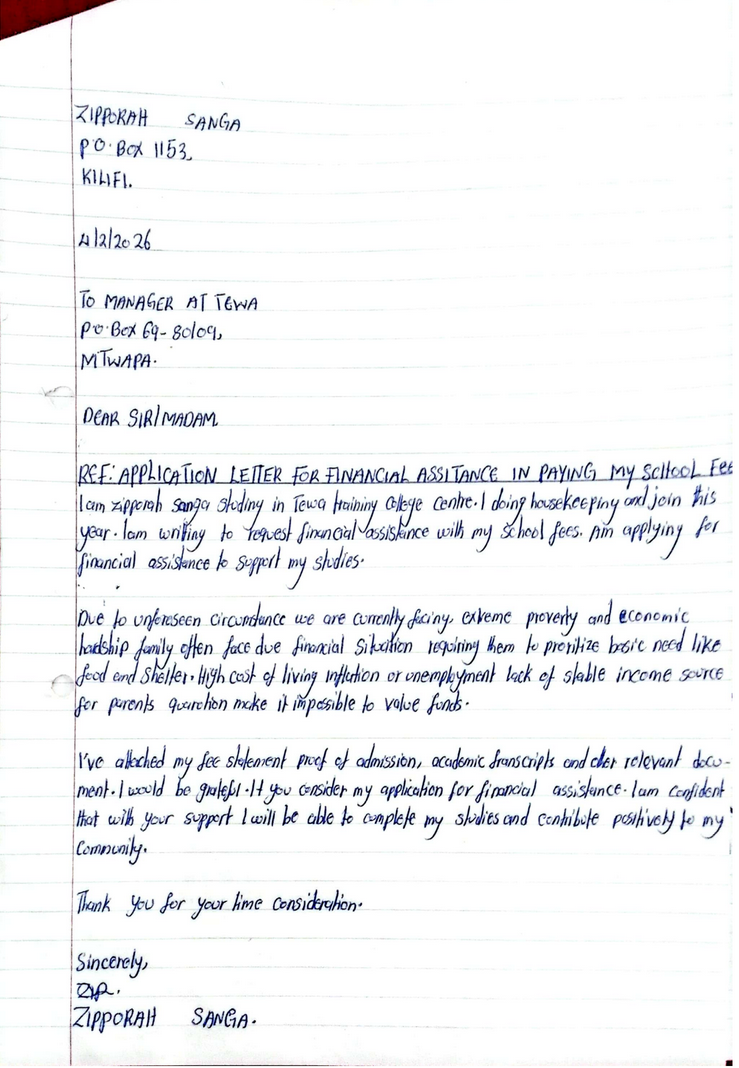 ZIPPORAH SANGA
P.O. BOX 1153,
KILIFI.
4/2/2026
TO MANAGER AT TEWA
P.O. Box 69-80109,
MTWAPA.
DEAR SIR/MADAM
REF: APPLICATION LETTER FOR FINANCIAL ASSITANCE IN PAYING MY SCHOOL FEE
I am zipporah sanga studing in Tewa training College Centre. I doing housekeeping and join this
year. Iam writing to request financial assistance with my school fees. Am applying for
financial assistance to support my studies.
Due to unforeseen circumstance we are currently facing, extreme proverty and economic
hardship family often face due financial Situation requiring them to prioritize basic need like
food and shelter. High cost of living inflation or unemployment lack of stable income source
for parents guardian make it impossible to value funds.
I've attached my fee statement proof of admission, academic transcripts and other relevant docu-
ment. I would be grateful. If you consider my application for financial assistance. Iam confident
that with your support I will be able to complete my studies and contibute positively to my
Community.
Thank you for your time consideration.
Sincerely,
ZIPPORAH SANGA.